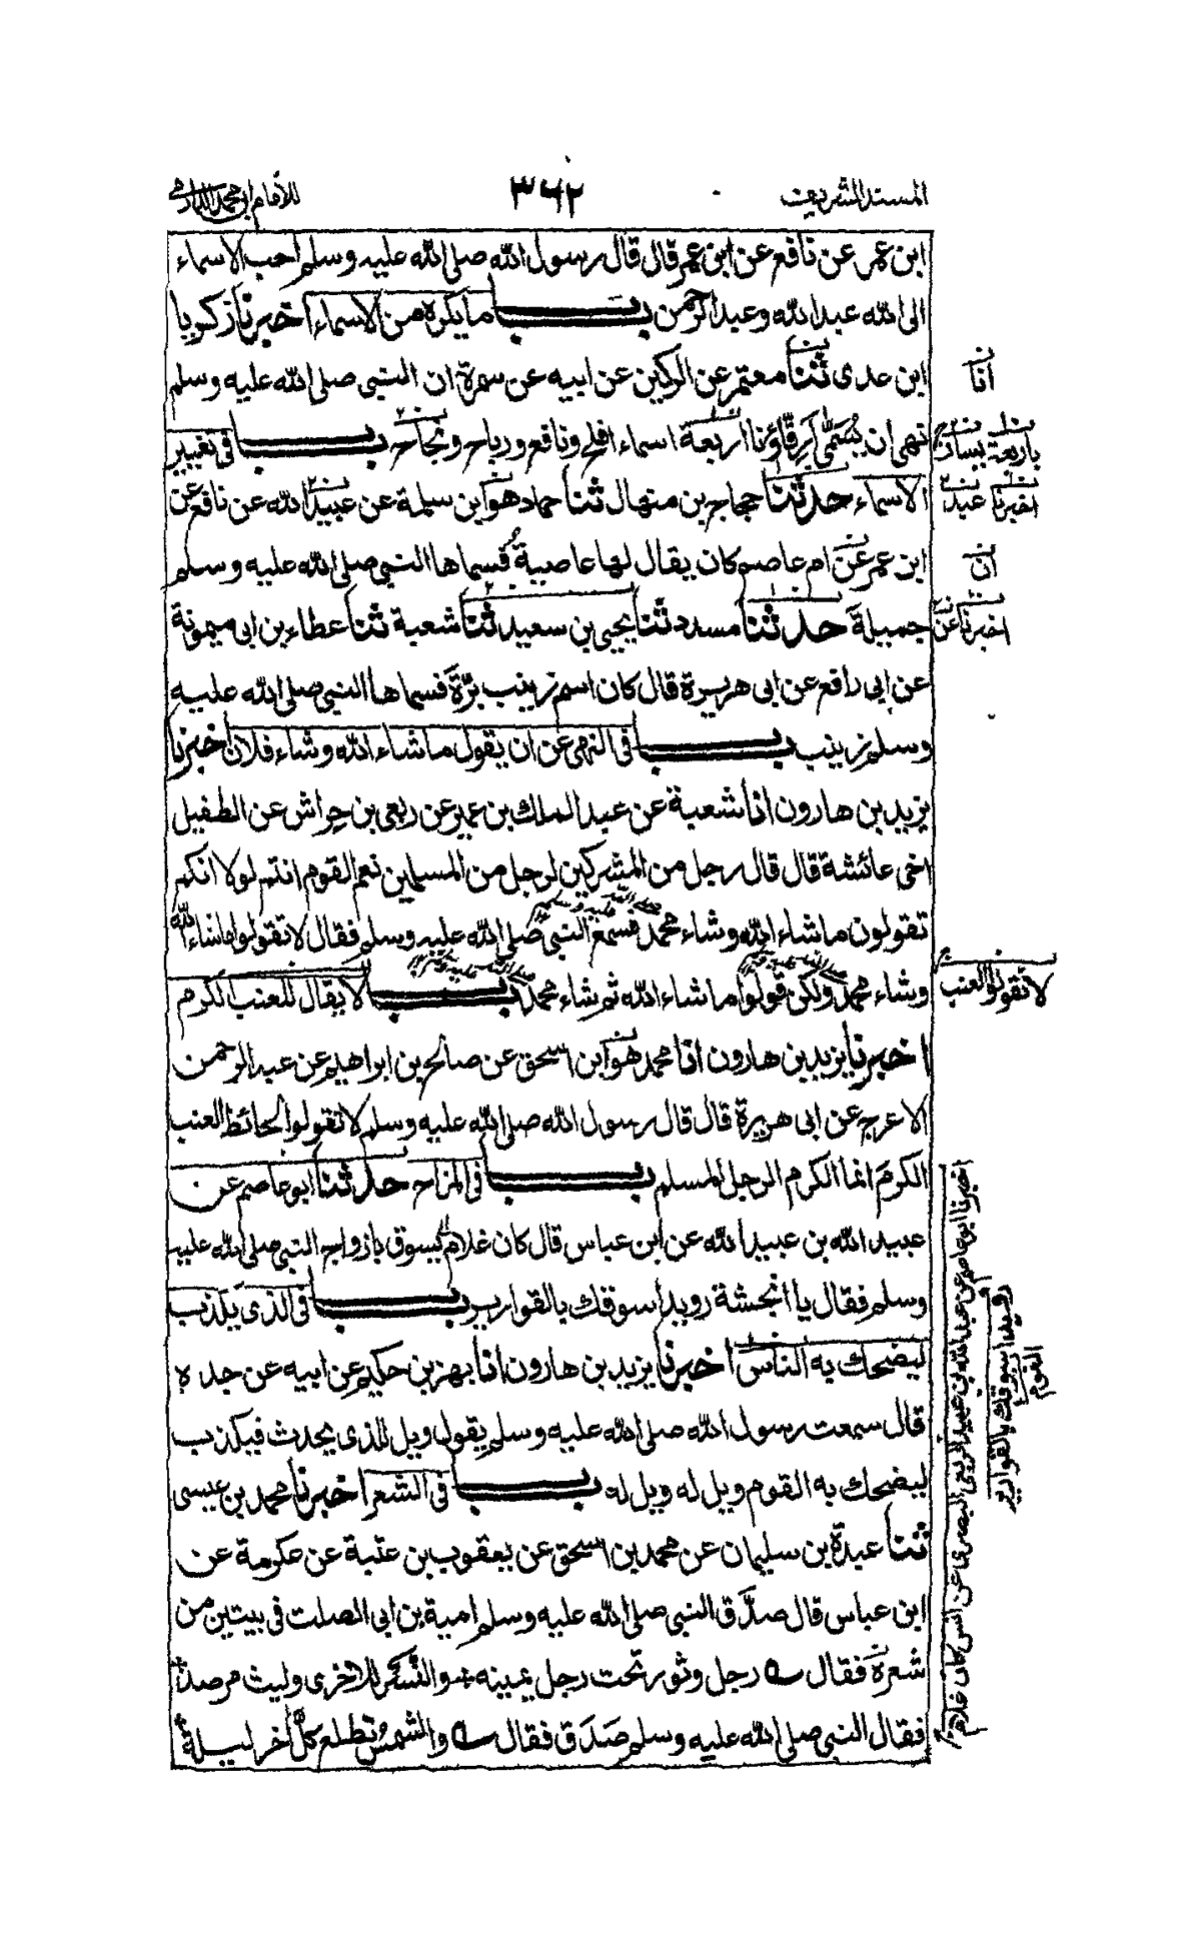 المسند الشريف
٣٦٢
للامام ابى محمد الدارمى
ابن عمر عن نافع عن ابن عمر قال قال رسول الله صلى الله عليه وسلم احب الاسماء
الى الله عبد الله وعبد الرحمن باب ما يكره من الاسماء اخبرنا زكريا
ابن عدى ثنا معتمر عن الركين عن ابيه عن سمرة ان النبى صلى الله عليه وسلم
نهى ان يُسَمّٰى اَرِقّاؤنا اربعة اسماء افلح ونافع ورباح ونجاح باب فى تغيير
الاسماء حدثنا حجاج بن منهال ثنا حماد هو ابن سلمة عن عبيد الله عن نافع عن
ابن عمر عن ام عاصم كان يقال لها عاصية فسماها النبى صلى الله عليه وسلم
جميلة حدثنا مسدد ثنا يحيى بن سعيد ثنا شعبة ثنا عطاء بن ابى ميمونة
عن ابى رافع عن ابى هريرة قال كان اسم زينب بَرّة فسماها النبى صلى الله عليه
وسلم زينب باب فى النهى عن ان يقول ما شاء الله وشاء فلان اخبرنا
يزيد بن هارون انا شعبة عن عبد الملك بن عمير عن ربعى بن حِراش عن الطفيل
اخى عائشة قال قال رجل من المشركين لرجل من المسلمين نعم القوم انتم لولا انكم
تقولون ما شاء الله وشاء محمد فسمع النبى صلى الله عليه وسلم فقال لا تقولوا ماشاء الله
وشاء محمد ولكن قولوا ما شاء الله ثم شاء محمد باب لا يقال للعنب الكرم
اخبرنا يزيد بن هارون انا محمد هو ابن اسحق عن صالح بن ابراهيم عن عبد الرحمن
الاعرج عن ابى هريرة قال قال رسول الله صلى الله عليه وسلم لا تقولوا لحائط العنب
الكرمَ انما الكرم الرجل المسلم باب فى المزاح حدثنا ابو عاصم عن
عبيد الله بن عبيد الله عن ابن عباس قال كان غلام يسوق بازواج النبى صلى الله عليه
وسلم فقال يا انجشة رويدا سوقك بالقوارير باب فى الذى يكذب
ليضحك به الناس اخبرنا يزيد بن هارون انا بهز بن حكيم عن ابيه عن جده
قال سمعت رسول الله صلى الله عليه وسلم يقول ويل للذى يحدث فيكذب
ليضحك به القوم ويل له ويل له باب فى الشعر اخبرنا محمد بن عيسى
ثنا عبدة بن سليمان عن محمد بن اسحق عن يعقوب بن عتبة عن عكرمة عن
ابن عباس قال صدّق النبى صلى الله عليه وسلم امية بن ابى الصلت فى بيتين من
شعره فقال رجل وثور تحت رجل يمينه والنسر للاخرى وليث مرصد
فقال النبى صلى الله عليه وسلم صَدَق فقال والشمس تطلع كلّ اخر ليلة
انا
باربعة
اخبرنا عبد
ان
اخبرنا عن
لا تقولوا العنب
اخبرنا ابو عاصم عن عبد الله بن عبيد الربعى البصرى عن انس كان غلام
رويدا سوقك بالقوارير
القوم